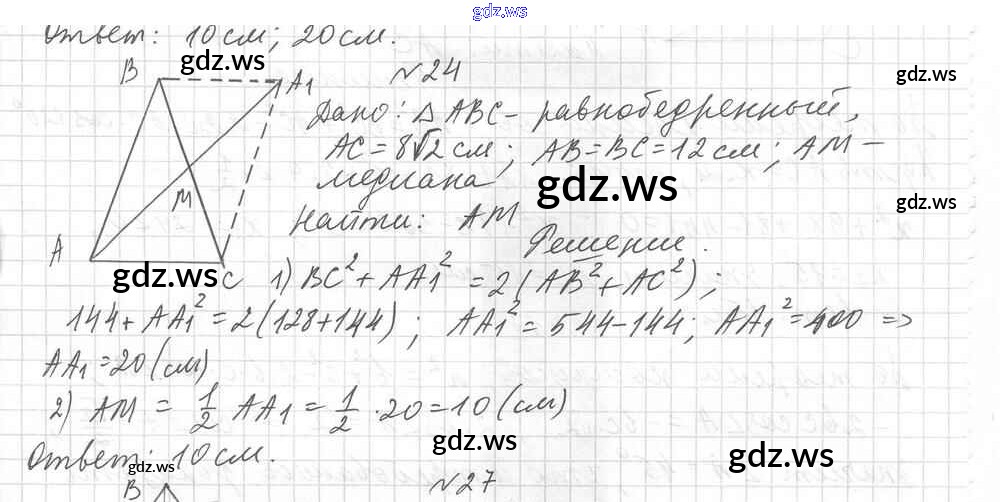 gdz.ws
Ответ: 10 см; 20 см.
gdz.ws
B A₁ №24
gdz.ws
Дано: △ABC – равнобедренный,
AC = 8√2 см; AB = BC = 12 см; AM –
медиана
gdz.ws
M
gdz.ws
Найти: AM
Решение.
A
gdz.ws
C 1) BC² + AA₁² = 2(AB² + AC²);
144 + AA₁² = 2(128 + 144); AA₁² = 544 – 144; AA₁² = 400 =>
AA₁ = 20 (см)
2) AM = 1/2 AA₁ = 1/2 · 20 = 10 (см)
gdz.ws
gdz.ws
Ответ: 10 см.
gdz.ws
B №27